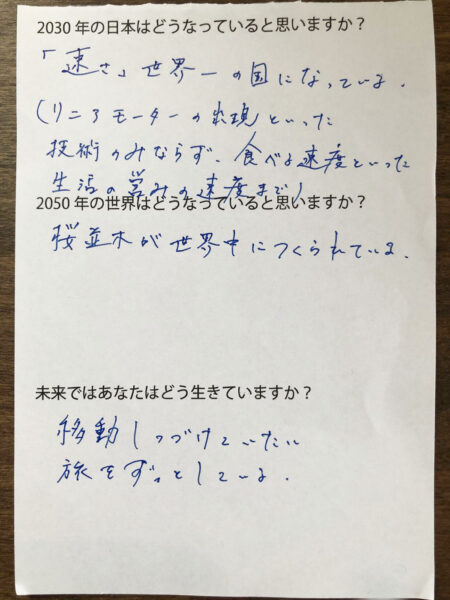 2030 年の日本はどうなっていると思いますか？
「速さ」世界一の国になっている.
(リニアモーターの出現といった
技術のみならず、食べる速度といった
生活の営みの速度まで)
2050 年の世界はどうなっていると思いますか？
桜並木が世界中につくられている.
未来ではあなたはどう生きていますか？
移動しつづけていたい
旅をずっとしている.